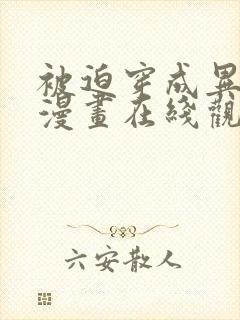 被迫穿成異
漫畫在綫觀
六安散人